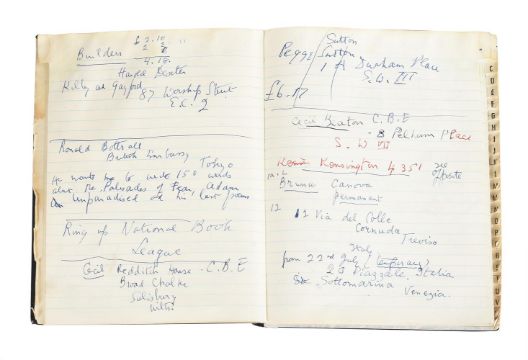 Builders £ 2.10.
4.10.
Harold Dexter
87 Worship Street
E.C. 2
Ronald Bottrall
British Embassy Tokyo
He wants me to write 150 words
about the Palisades of Fear, Adam
Unparadised & his last poems
Ring up National Book
League
Cecil Reddish House. C.B.E
Broad Chalke
Salisbury
Wilts.
Peggy Sutton
Sutton
1 A Durham Place
S.W. III
£6.17
Cecil Beaton C.B.E
8 Pelham Place
S W VII
Kensington 4351
see
opposite
Bruna Canova
Permanent
12
12 Via del Colle
Cornuda
Treviso
Italy
from 22nd July (temporary)
23 Piazzale Italia
Sottomarina Venezia.